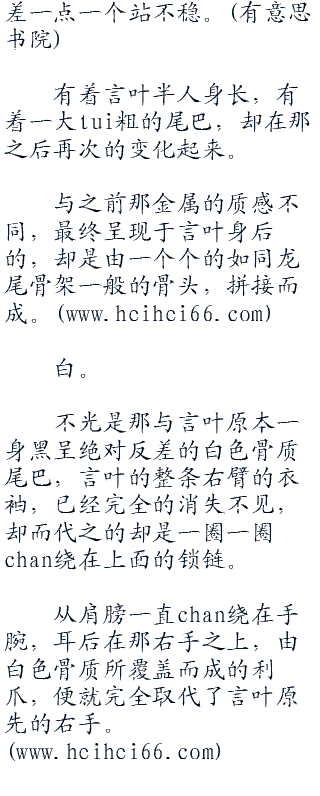 差一点一个站不稳。(有意思
书院)
有着言叶半人身长，有
着一大tui粗的尾巴，却在那
之后再次的变化起来。
与之前那金属的质感不
同，最终呈现于言叶身后
的，却是由一个个的如同龙
尾骨架一般的骨头，拼接而
成。(www.hcihci66.com)
白。
不光是那与言叶原本一
身黑呈绝对反差的白色骨质
尾巴，言叶的整条右臂的衣
袖，已经完全的消失不见，
却而代之的却是一圈一圈
chan绕在上面的锁链。
从肩膀一直chan绕在手
腕，耳后在那右手之上，由
白色骨质所覆盖而成的利
爪，便就完全取代了言叶原
先的右手。
(www.hcihci66.com)